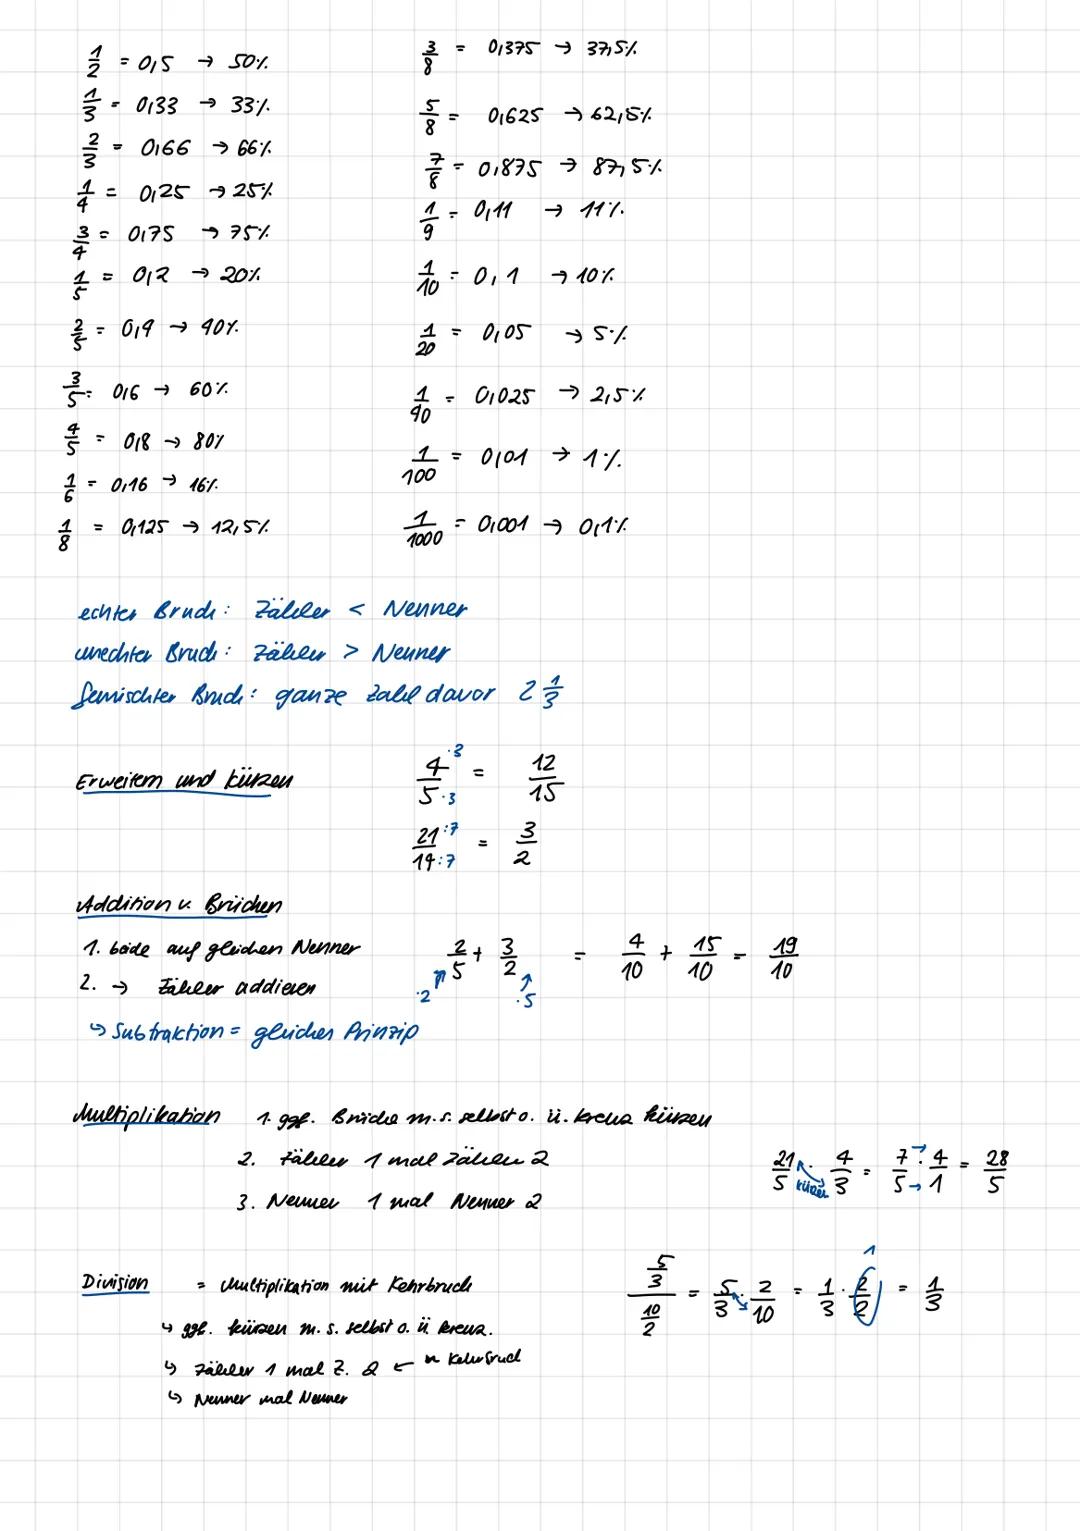 1/2 = 0,5 → 50%
1/3 = 0,33 → 33%
2/3 = 0,66 → 66%
1/4 = 0,25 → 25%
3/4 = 0,75 → 75%
1/5 = 0,2 → 20%
2/5 = 0,4 → 40%
3/5 = 0,6 → 60%
4/5 = 0,8 → 80%
1/6 = 0,16 → 16%
1/8 = 0,125 → 12,5%
3/8 = 0,375 → 37,5%
5/8 = 0,625 → 62,5%
7/8 = 0,875 → 87,5%
1/9 = 0,11 → 11%
1/10 = 0,1 → 10%
1/20 = 0,05 → 5%
1/40 = 0,025 → 2,5%
1/100 = 0,01 → 1%
1/1000 = 0,001 → 0,1%
echter Bruch: Zähler < Nenner
unechter Bruch: Zähler > Nenner
Gemischter Bruch: ganze Zahl davor 2 1/3
Erweitern und kürzen 4·3/5·3 = 12/15
21:7/14:7 = 3/2
Addition v. Brüchen
1. beide auf gleichen Nenner 2/5 + 3/2 = 4/10 + 15/10 = 19/10
2. → Zähler addieren ·2 ·5
↳ Subtraktion = gleiches Prinzip
Multiplikation 1. ggf. Brüche m. s. selbst o. ü. kreuz kürzen
2. Zähler 1 mal Zähler 2
21/5 · 4/3 = 7/5 · 4/1 = 28/5
kürzen
3. Nenner 1 mal Nenner 2
Division = Multiplikation mit Kehrbruch
5/3 / 10/2 = 5/3 · 2/10 = 1/3 · 2/2 = 1/3
1
↳ ggf. kürzen m. s. selbst o. ü. kreuz.
↳ Zähler 1 mal Z. 2 ← n Kehrbruch
↳ Nenner mal Nenner